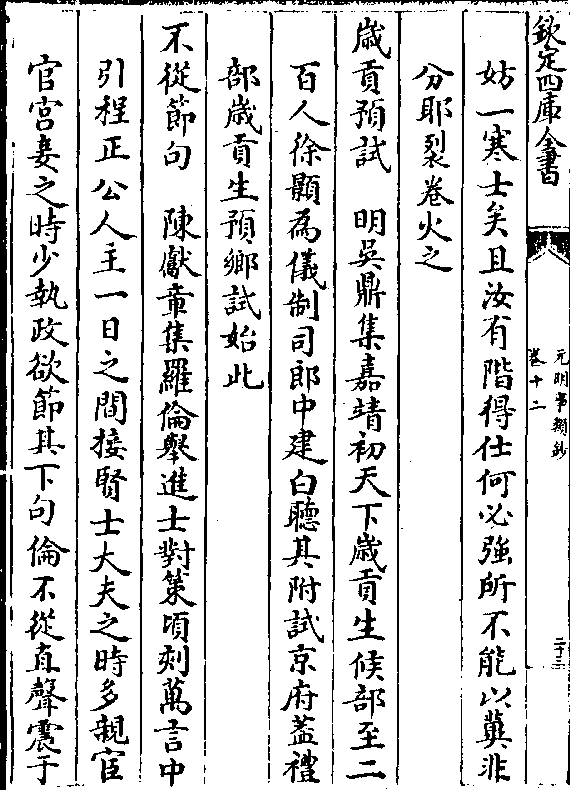 欽定四庫全書
元明事類鈔
卷十二
二十三
妨一寒士矣且汝有階得仕何必強所不能以冀非
分耶裂卷火之
歳貢預試　明吳鼎集嘉靖初天下歳貢生候部至二
百人徐顥為儀制司郎中建白聽其附試京府葢禮
部歳貢生預鄉試始此
不從節句　陳獻章集羅倫舉進士對策頃刻萬言中
引程正公人主一日之間接賢士大夫之時多親宦
官宮妾之時少執政欲節其下句倫不從直聲震于